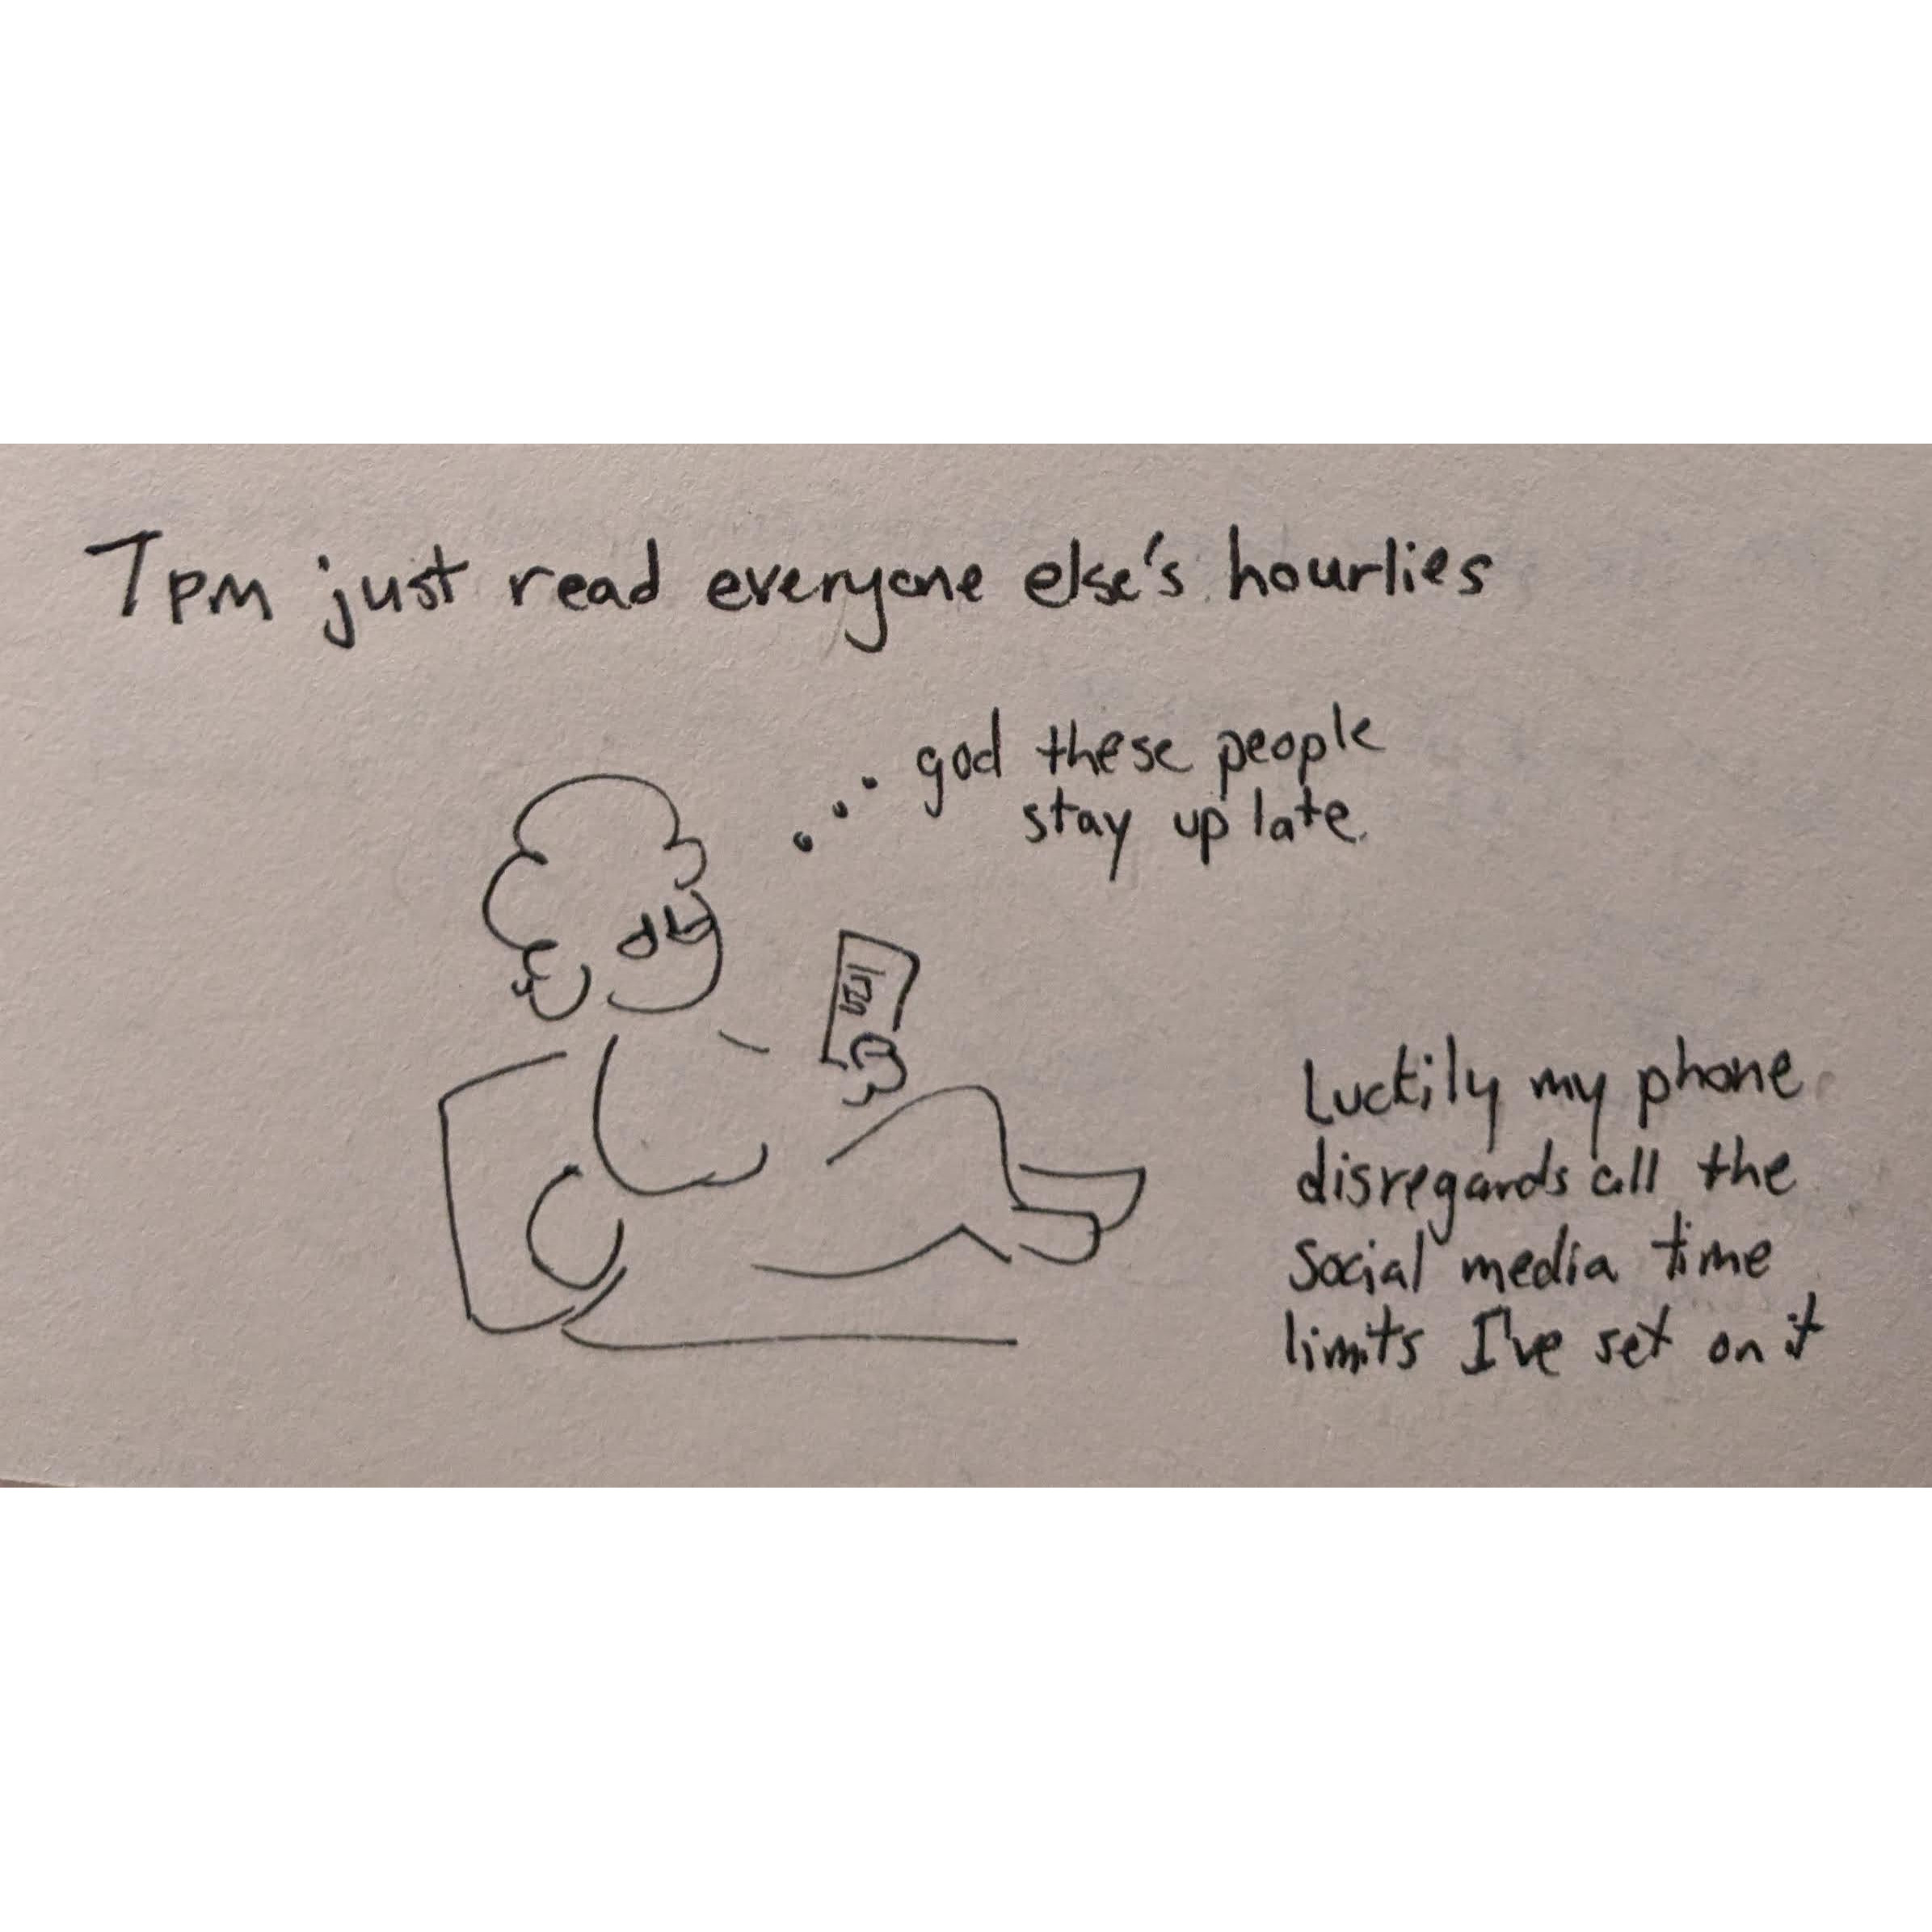 7pm just read everyone else's hourlies
god these people
stay up late.
Luckily my phone
disregards all the
social media time
limits I've set on it